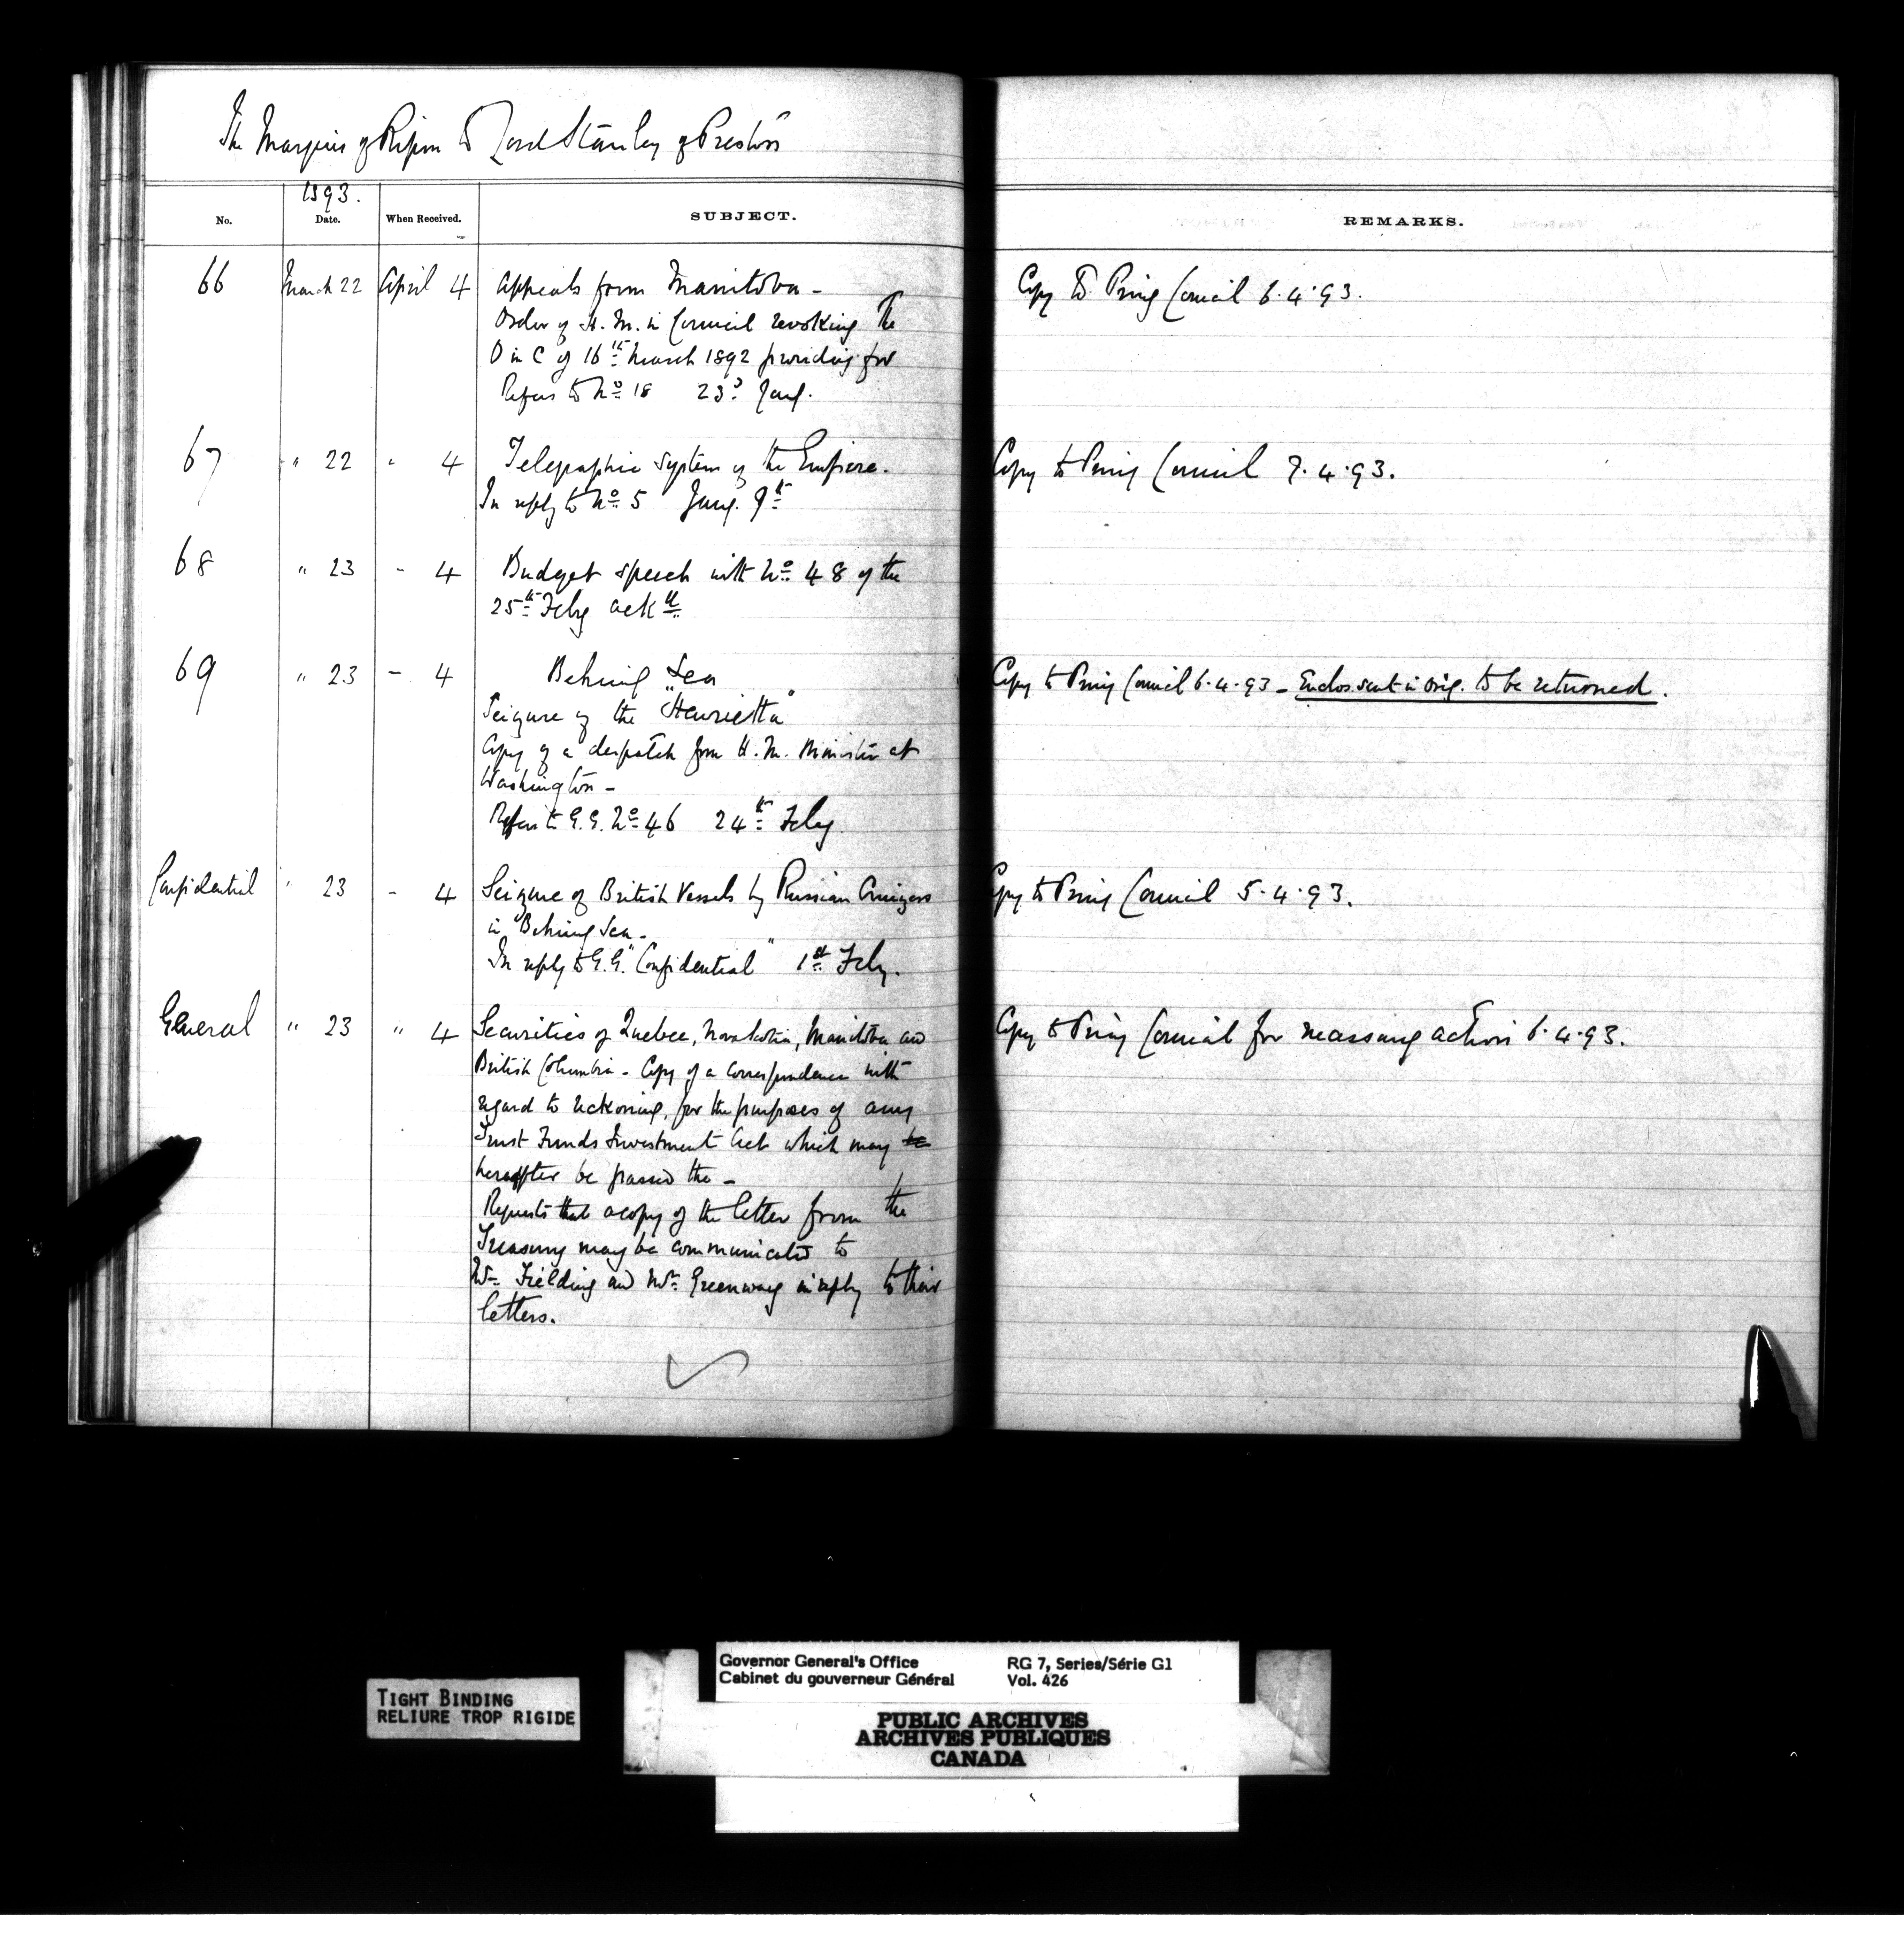 The Marquis of Ripon to Lord Stanley of Preston
1893.
No. Date. When Received. SUBJECT. REMARKS.
66 March 22 April 4 Appeals from Manitoba - Copy to Privy Council 6.4.93.
Order of H. M. in Council revoking the
O in C of 16th March 1892 providing for
Refers to No 18 23d Jany.
67 " 22 " 4 Telegraphic System of the Empire. Copy to Privy Council 7.4.93.
In reply to No 5 Jany. 9th
68 " 23 - 4 Budget speech with No 48 of the
25th Feby ackd
69 " 23 - 4 Behring Sea Copy to Privy Council 6.4.93 - Enclos. sent in orig. to be returned.
Seizure of the "Henrietta"
Copy of a despatch from H. M. Minister at
Washington -
Refers to G.G. No 46 24th Feby
Confidential " 23 - 4 Seizure of British Vessels by Russian Cruizers Copy to Privy Council 5.4.93.
in Behring Sea -
In reply to G.G. "Confidential" 1st Feby.
General " 23 " 4 Securities of Quebec, Nova Scotia, Manitoba and Copy to Privy Council for necessary action 6.4.93.
British Columbia - Copy of a correspondence with
regard to reckoning, for the purposes of any
Trust Funds Investment Act which may be
hereafter be passed the -
Requests that a copy of the letter from the
Treasury may be communicated to
Mr. Fielding and Mr. Greenway in reply to their
letters.
Governor General's Office RG 7, Series/Série G1
Cabinet du gouverneur Général Vol. 426
TIGHT BINDING
RELIURE TROP RIGIDE
PUBLIC ARCHIVES
ARCHIVES PUBLIQUES
CANADA